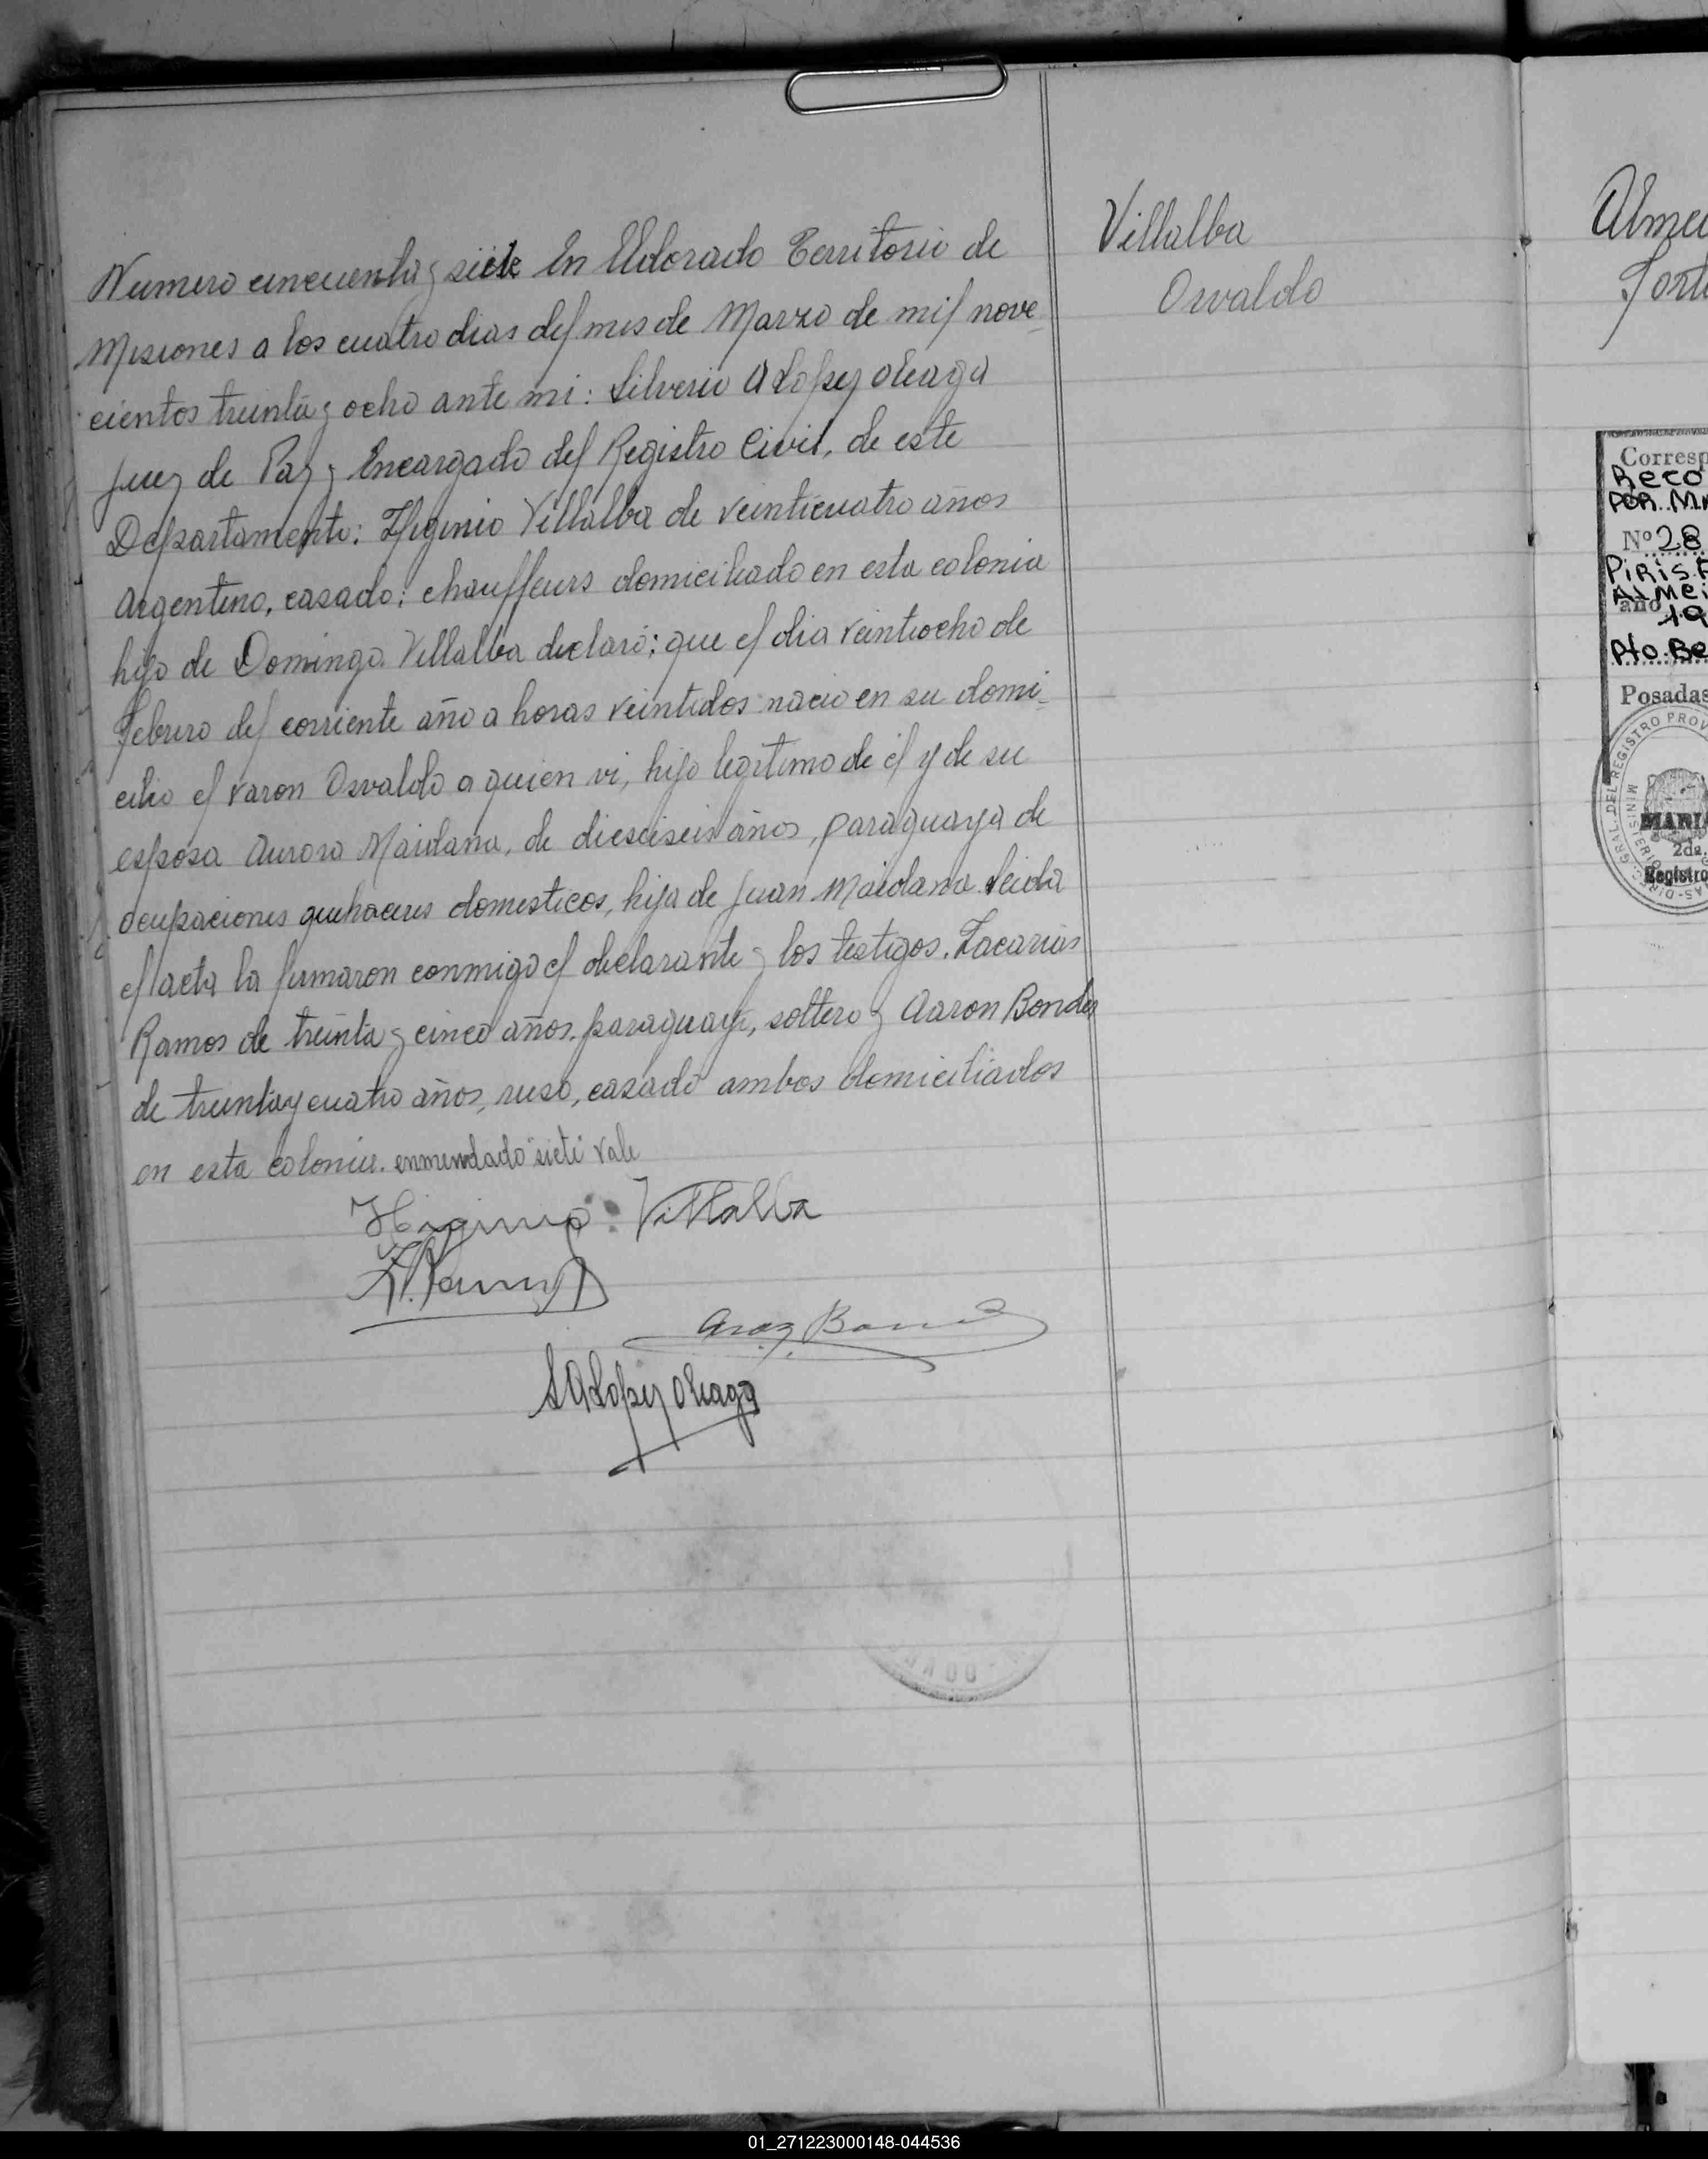 Villalba
Osvaldo
Numero cincuenta y siete En Eldorado Territorio de
Misiones a los cuatro dias del mes de Marzo de mil nove-
cientos treinta y ocho ante mi: Silverio A Lopez Oleaga
Juez de Paz y Encargado del Registro Civil, de este
Departamento: Higinio Villalba de veinticuatro años
Argentino, casado: chauffeurs domiciliado en esta colonia
hijo de Domingo Villalba declaró: que el dia veintiocho de
Febrero del corriente año a horas veintidos nacio en su domi-
cilio el varon Osvaldo a quien vi, hijo legitimo de él y de su
esposa Aurora Maidana, de dieciseis años, paraguaya de
ocupaciones quehaceres domesticos, hija de Juan Maidana. Leida
el acta la firmaron conmigo el declarante y los testigos. Zacarias
Ramos de treinta y cinco años. paraguayo, soltero y Aaron Bonder
de treinta y cuatro años, ruso, casado ambos domiciliados
en esta colonia. enmendado siete vale
Higinio Villalba
Z. Ramos
S A Lopez Oleaga
Corresp
Reco
POR. MI
Nº 28
PiRis.F
ALMEi
año 19
Pto. Be
Posadas
DIREC. GRAL. DEL REGISTRO PROV
MINISTERIO
MARIA
2da.
Registro
01_271223000148-044536